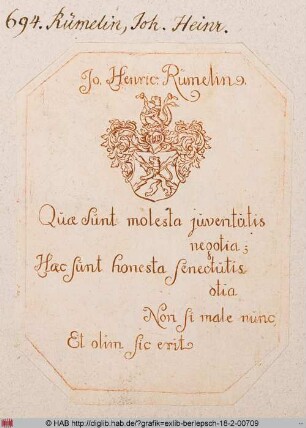 694. Rümelin, Joh. Heinr.
Jo. Henric. Rümelin.
Quæ sunt molesta juventutis
negotia;
Hæc sunt honesta senectutis
otia
Non si male nunc
Et olim sic erit
© HAB http://diglib.hab.de/?grafik=exlib-berlepsch-18-2-00709